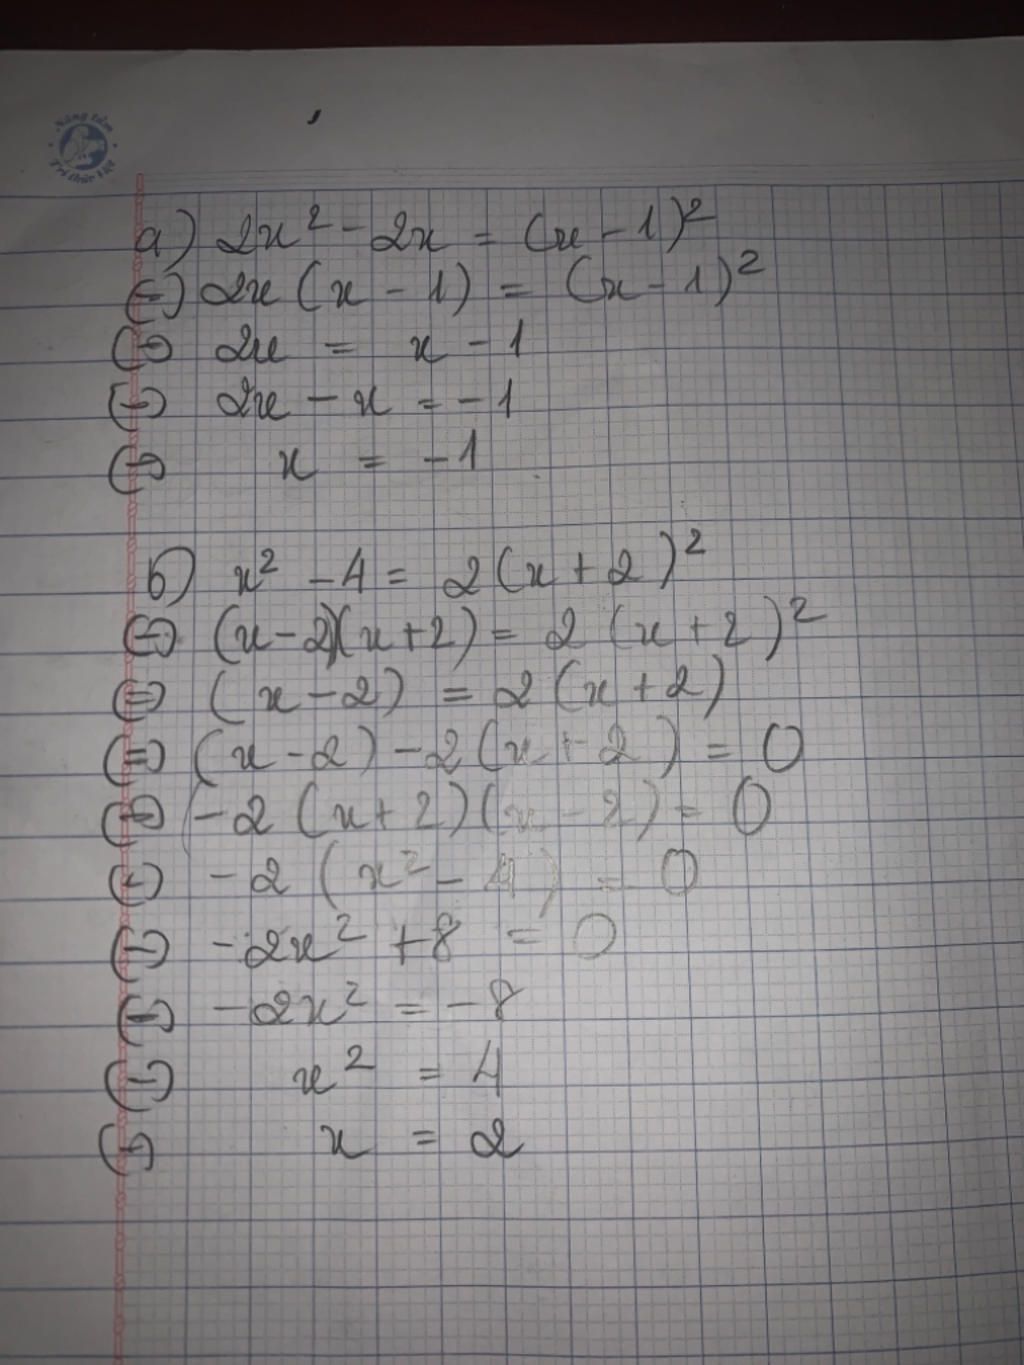 Nâng tầm
Tri thức Việt
a) 2x² - 2x = (x - 1)²
(=) 2x (x - 1) = (x - 1)²
(=) 2x = x - 1
(=) 2x - x = -1
(=) x = -1
b) x² - 4 = 2(x + 2)²
(=) (x - 2)(x + 2) = 2 (x + 2)²
(=) (x - 2) = 2 (x + 2)
(=) (x - 2) - 2 (x + 2) = 0
(=) - 2 (x + 2)(x - 2) = 0
(=) - 2 (x² - 4) = 0
(=) - 2x² + 8 = 0
(=) - 2x² = - 8
(=) x² = 4
(=) x = 2